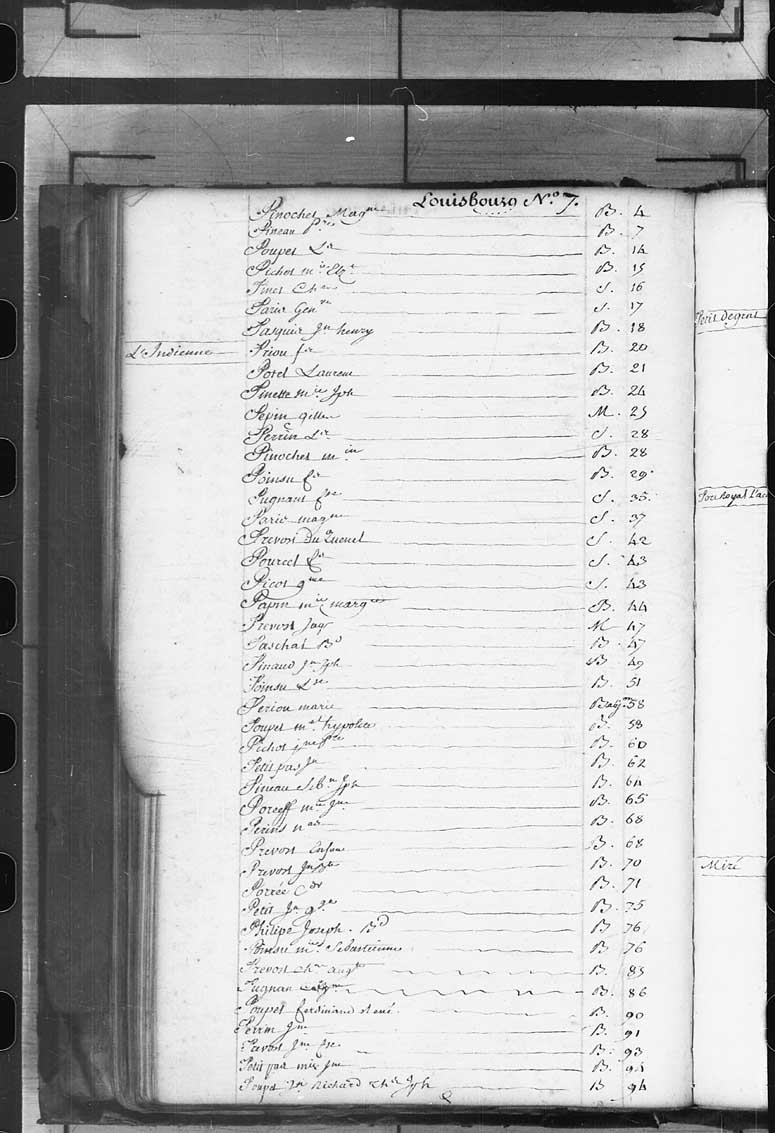 Louisbourg N.o 7.
Pinochet Mag.ne B. 4
Pineau P.re B. 7
Poupet L.s B. 14
Pichot m.ie Eliz.e B. 15
Pinet Ch.es S. 16
Paris Gen.ve S. 17
Pasquier J.n henry B. 18
L'Indienne Priou f.ois B. 20
Potel Laurent B. 21
Pinette m.ie Jph B. 24
Pepin gilles M. 25
Perrin L.s S. 28
Pinochet m.in B. 28
Poinsu f.s B. 29
Pugnant f.se S. 35
Paris mag.ne S. 37
Prevost Du Quenel S. 42
Pourcel S. 43
Picot g.me S. 43
Papin m.ie marg.te B. 44
Prevost Jaq.s M 47
Paschal B.d B. 47
Pinaud J.n Jph B 49
Poinsu L.se B. 51
Periou marie B 58
Poupet m.el hypolite B. 58
Pichot B. 60
Petit pas J.n B. 62
Pineau Seb.n Jph B. 64
Poreeff m.ie J.ne B. 65
Perins B. 68
Prevost Enfant B. 68
Prevost J.n B.te B. 70
Porrée B. 71
Petit J.n B. 75
Philipe Joseph. B.d B 76
Poinsu m.ie Sebastienne B 76
Prevost Ch.es aug.te B. 85
Pugnan B. 86
Poupet ferdinand René B. 90
Perrin J.ne B. 91
Prevost J.ne f.se B. 93
Petit pas mie J.ne B. 94
Poupet Richard Ch.es Jph B 94
Petit degrat
Miré